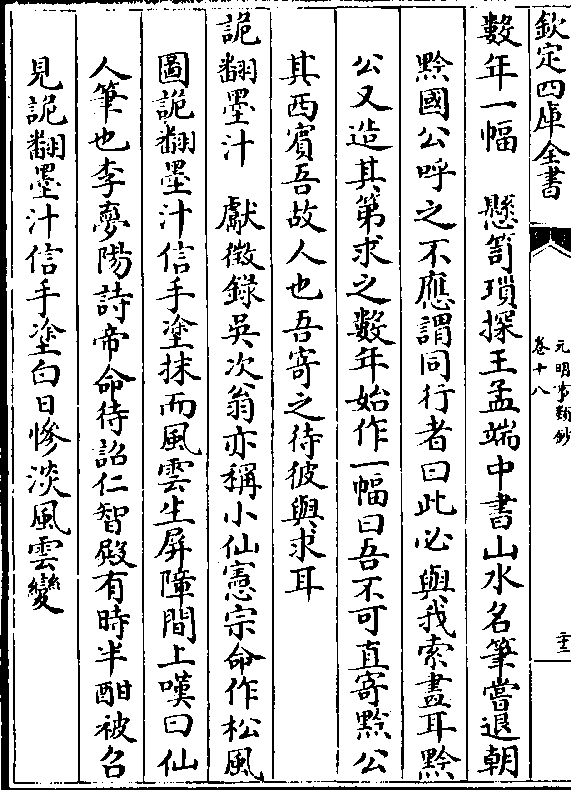 欽定四庫全書
元明事類鈔
卷十八
二十三
數年一幅　懸笥瑣探王孟端中書山水名筆嘗退朝
黔國公呼之不應謂同行者曰此必與我索畫耳黔
公又造其第求之數年始作一幅曰吾不可直寄黔公
其西賓吾故人也吾寄之待彼與求耳
詭翻墨汁　獻徵錄吳次翁亦稱小仙憲宗命作松風
圖詭翻墨汁信手塗抹而風雲生屏障間上嘆曰仙
人筆也李夢陽詩帝命待詔仁智殿有時半酣被召
見詭翻墨汁信手塗白日慘淡風雲變